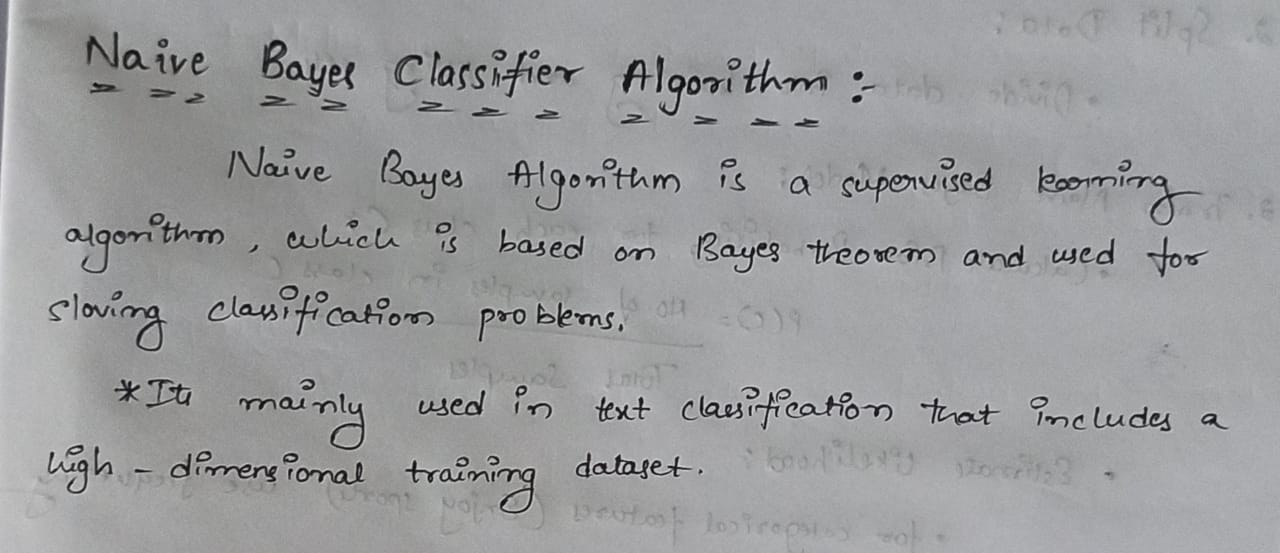 Naive Bayes Classifier Algorithm :-
Naive Bayes Algorithm is a supervised learning
algorithm, which is based on Bayes theorem and used for
sloving classification problems.
* Its mainly used in text classification that includes a
high - dimensional training dataset.